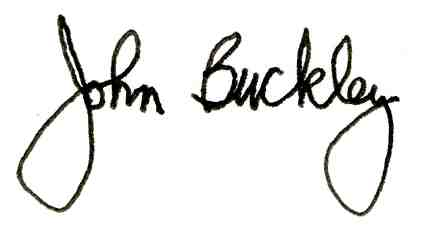 John Buckley